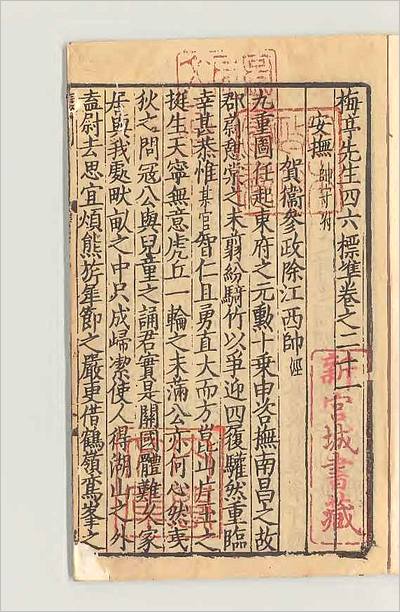 梅亭先生四六標準卷之二十一
安撫帥守附
賀衞參政除江西帥涇
九重圖任起東府之元勳十乘申咨撫南昌之故
郡蔚憩棠之未翦紛騎竹以爭迎四復驩然重臨
幸甚恭惟某官智仁且勇直大而方
挺生天寧無意虎丘一輪之未滿公亦何心然夷
狄之問冠公與兒童之誦君實是關國體難久家
居與我處畎畝之中只成歸潔使人得湖山之外
盍尉去思宜煩熊旂犀節之嚴更借鶴嶺鸞峯之
新宮城書藏